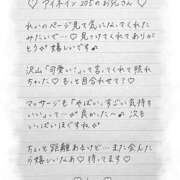 ♡ アイネイン 205のお兄さん ♡
れいのページ見て気になってくれた
みたいで… ♡ 見ててくれてありが
とうが嬉しいです♪
沢山「可愛い!」って言ってくれて照れ
ちゃいた♡ もっと目合わせて??
マッサージも「やばい、すごい気持ち
いい」って… が良かった〜♪ 次も
いっぱいほぐすねが
ちょっと距離あるけど… また会えた
ら嬉しいなあ♡ 待ってます♡